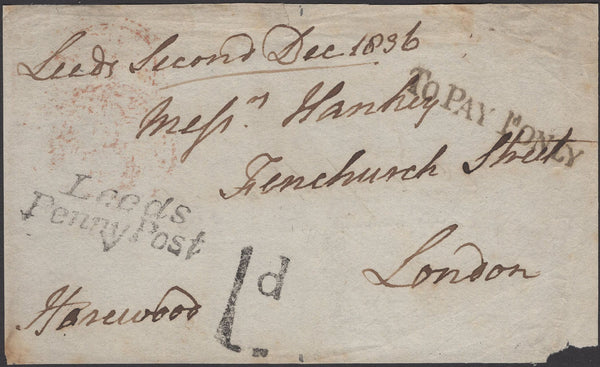 Leeds Second Dec 1836
To PAY 1d ONLY
Messrs Hankey
Fenchurch Street
Leeds
Penny Post
London
1d
Harewood